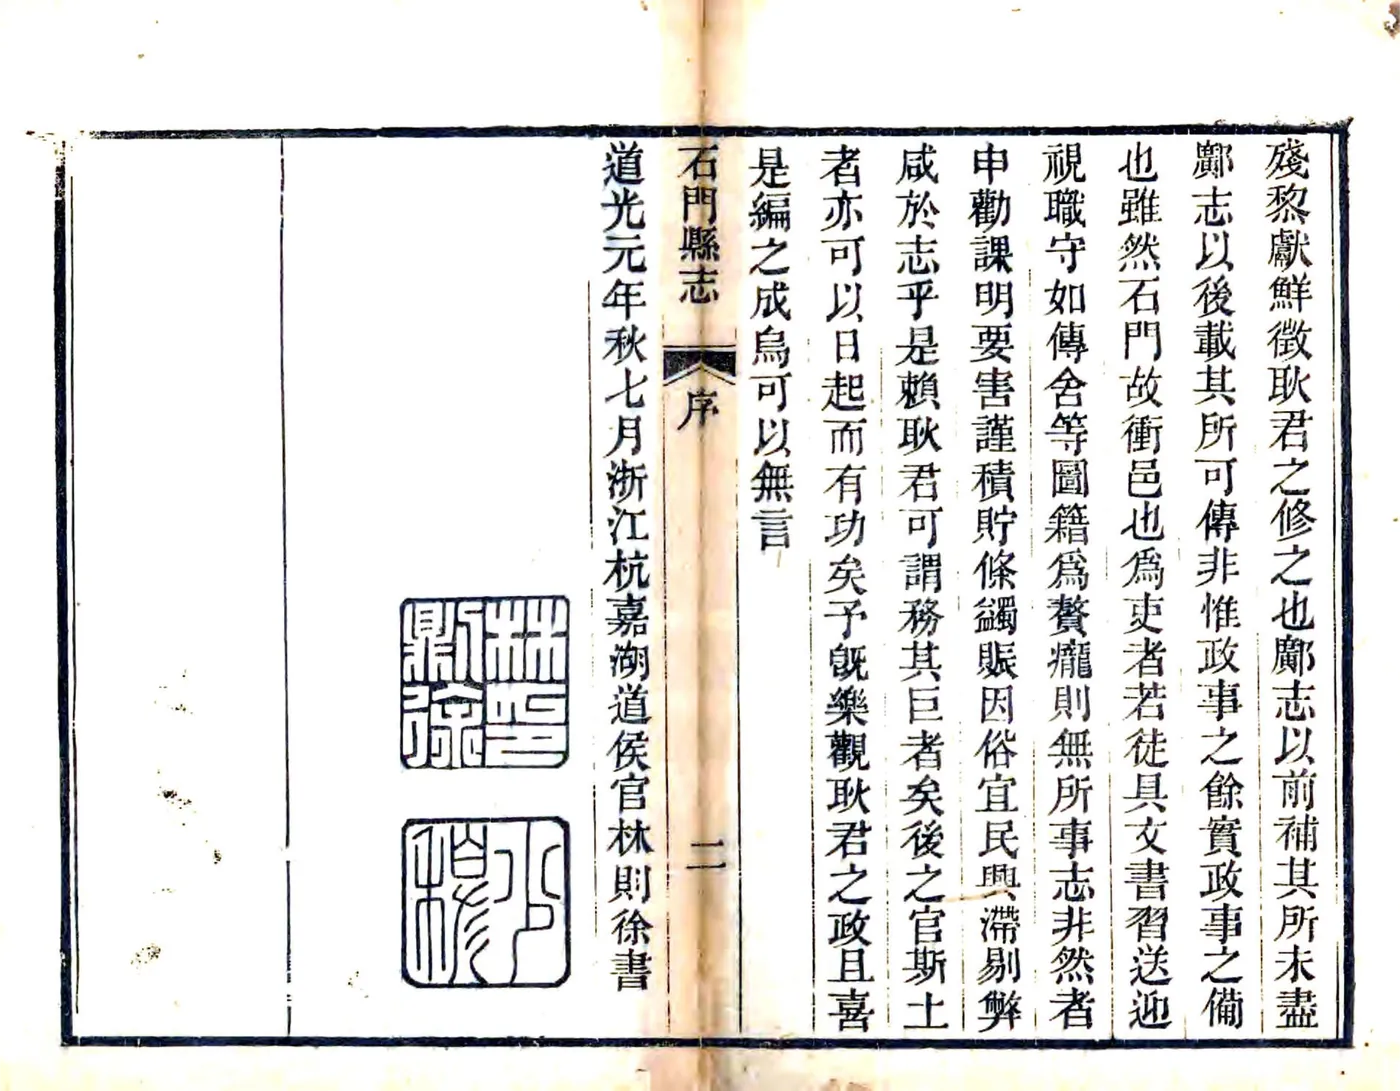 殘黎獻鮮徵耿君之修之也鄺志以前補其所未盡
鄺志以後載其所可傳非惟政事之餘實政事之備
也雖然石門故衝邑也為吏者若徒具文書習送迎
視職守如傳舍等圖籍為贅疣則無所事志非然者
申勸課明要害謹積貯條蠲賑因俗宜民興滯剔弊
咸於志乎是賴耿君可謂務其巨者矣後之官斯土
者亦可以日起而有功矣予旣樂觀耿君之政且喜
是編之成烏可以無言
石門縣志
序
二
道光元年秋七月浙江杭嘉湖道侯官林則徐書
林印則徐
少穆